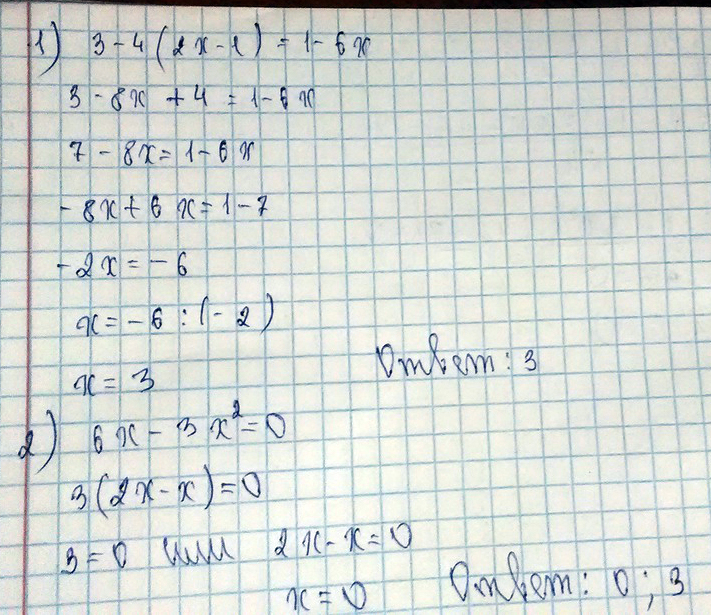 1) 3 - 4 (2x - 1) = 1 - 6x
3 - 8x + 4 = 1 - 6x
7 - 8x = 1 - 6x
- 8x + 6x = 1 - 7
- 2x = - 6
x = - 6 : (- 2)
x = 3
Ответ: 3
2) 6x - 3x² = 0
3(2x - x) = 0
3 = 0 или 2x - x = 0
x = 0
Ответ: 0; 3